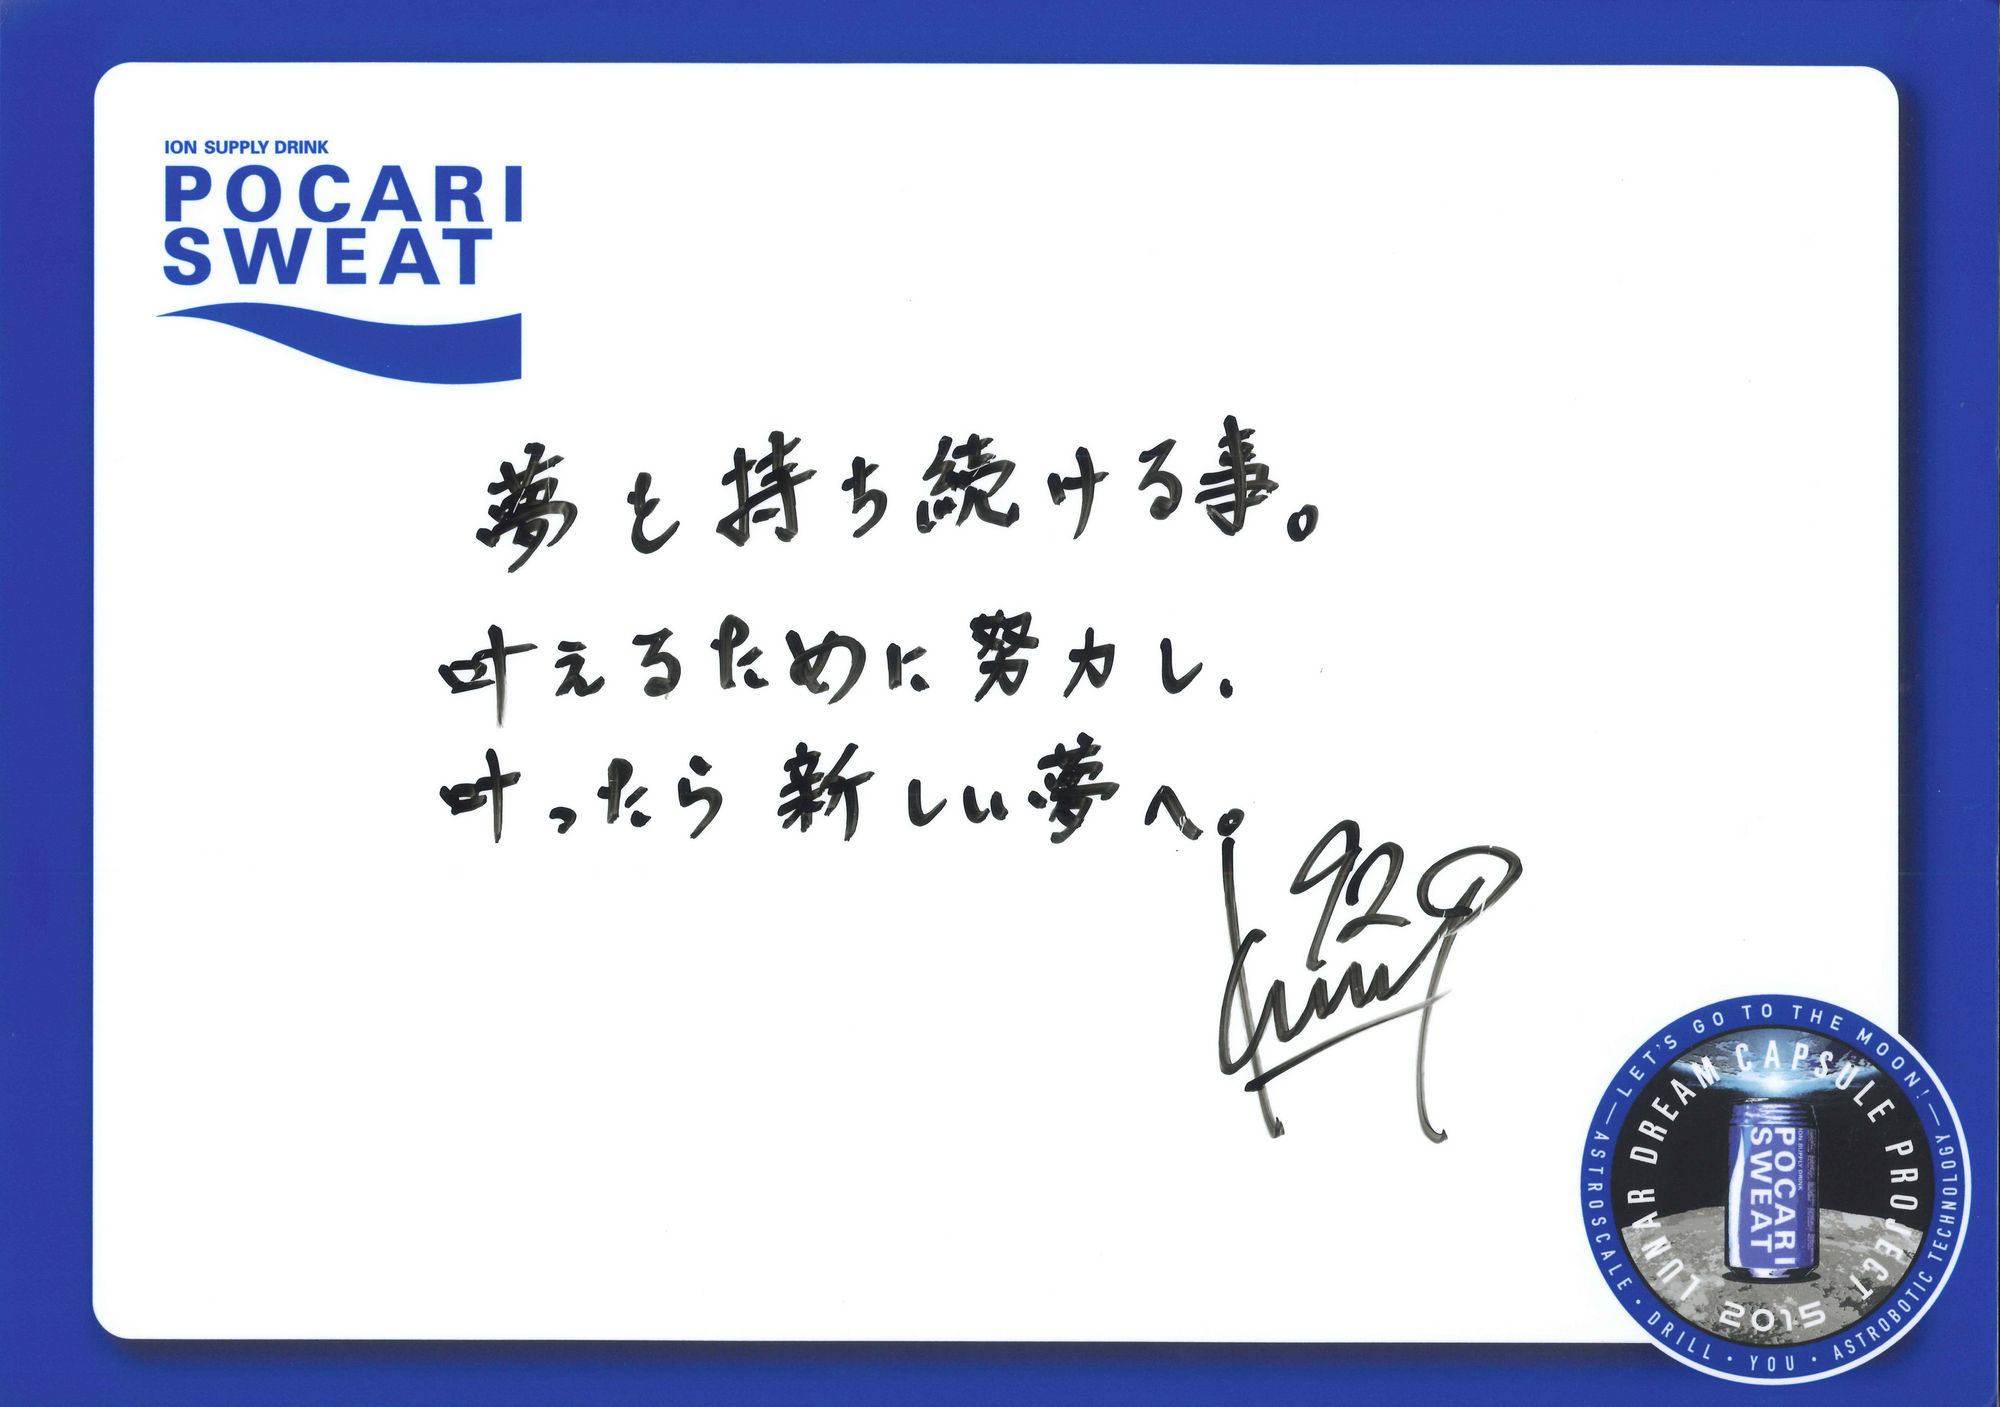 ION SUPPLY DRINK
POCARI
SWEAT
夢を持ち続ける事。
叶えるために努力し、
叶ったら新しい夢へ。
92
LET'S GO TO THE MOON!
LUNAR DREAM CAPSULE PROJECT
ION SUPPLY DRINK
POCARI
SWEAT
2015
ASTROSCALE・DRILL・YOU・ASTROBOTIC TECHNOLOGY